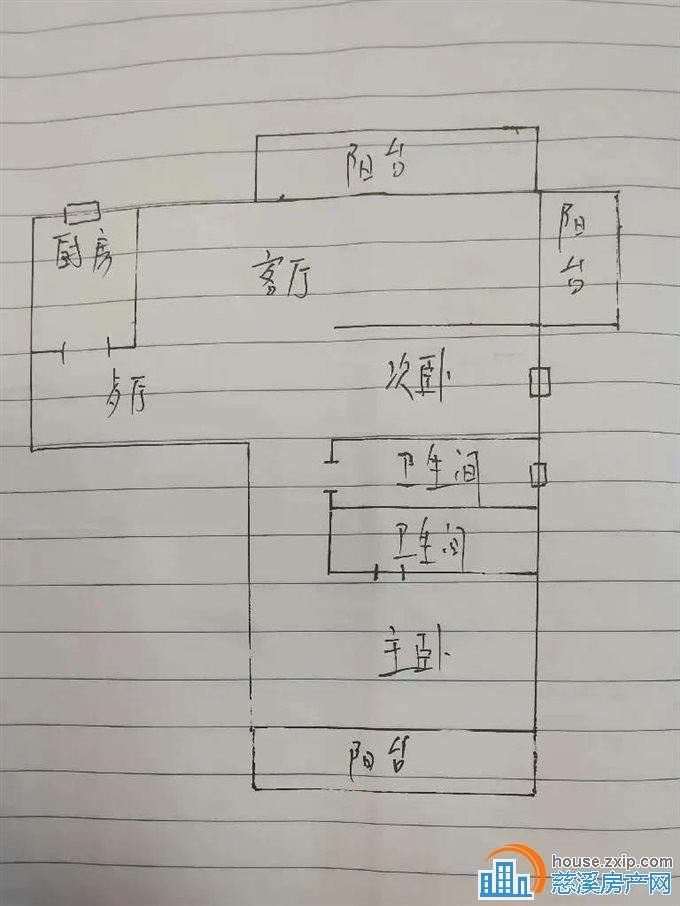 阳台
阳台
厨房
客厅
歺厅
次卧
卫生间
卫生间
主卧
阳台
house.zxip.com
慈溪房产网